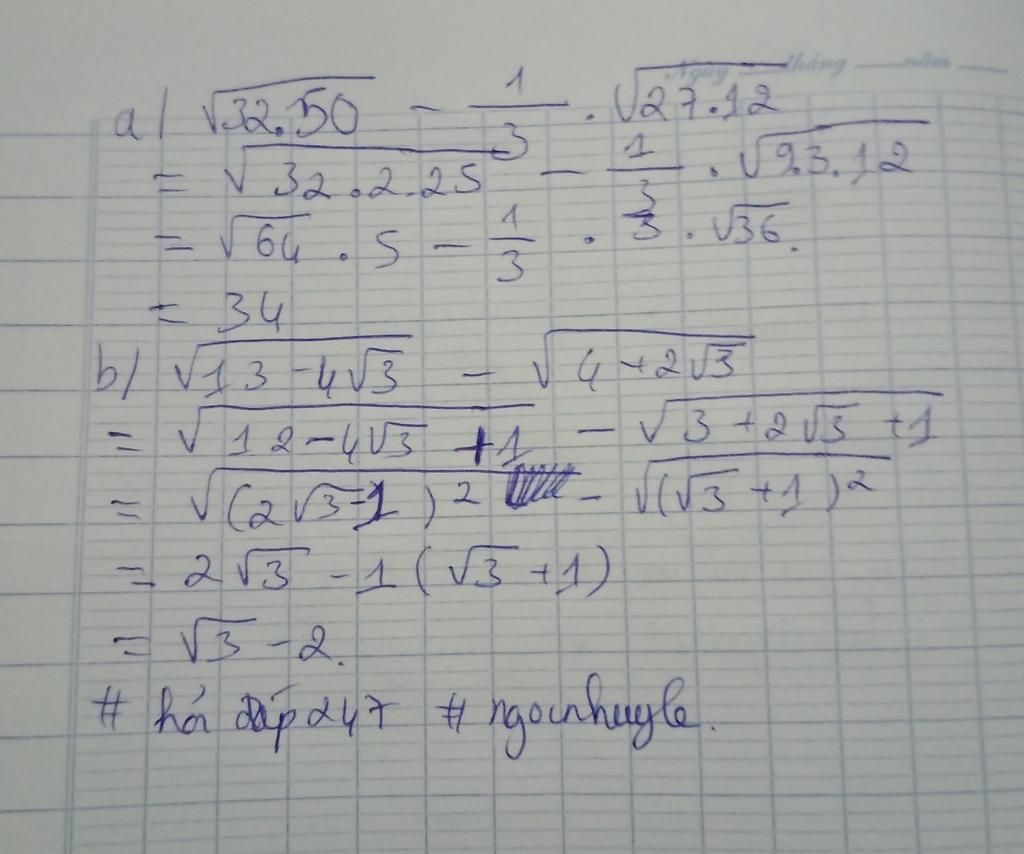 Ngày tháng năm
a/ √(32.50) - 1/3 . √(27.12)
= √(32.2.25) - 1/3 . √(9.3.12)
= √64 . 5 - 1/3 . 3 . √36.
= 34
b/ √(13 - 4√3) - √(4 + 2√3)
= √(12 - 4√3 + 1) - √(3 + 2√3 + 1)
= √((2√3 - 1)²) - √((√3 + 1)²)
= 2√3 - 1 (√3 + 1)
= √3 - 2.
# hỏi đáp 247 #